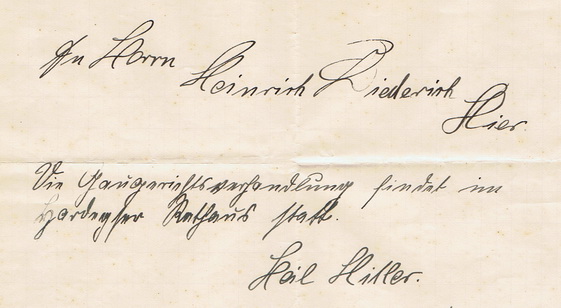 An Herrn
Heinrich Diederich
Hier.
Die Gaugerichtsverhandlung findet im
Hardegser Rathaus statt.
Heil Hitler.